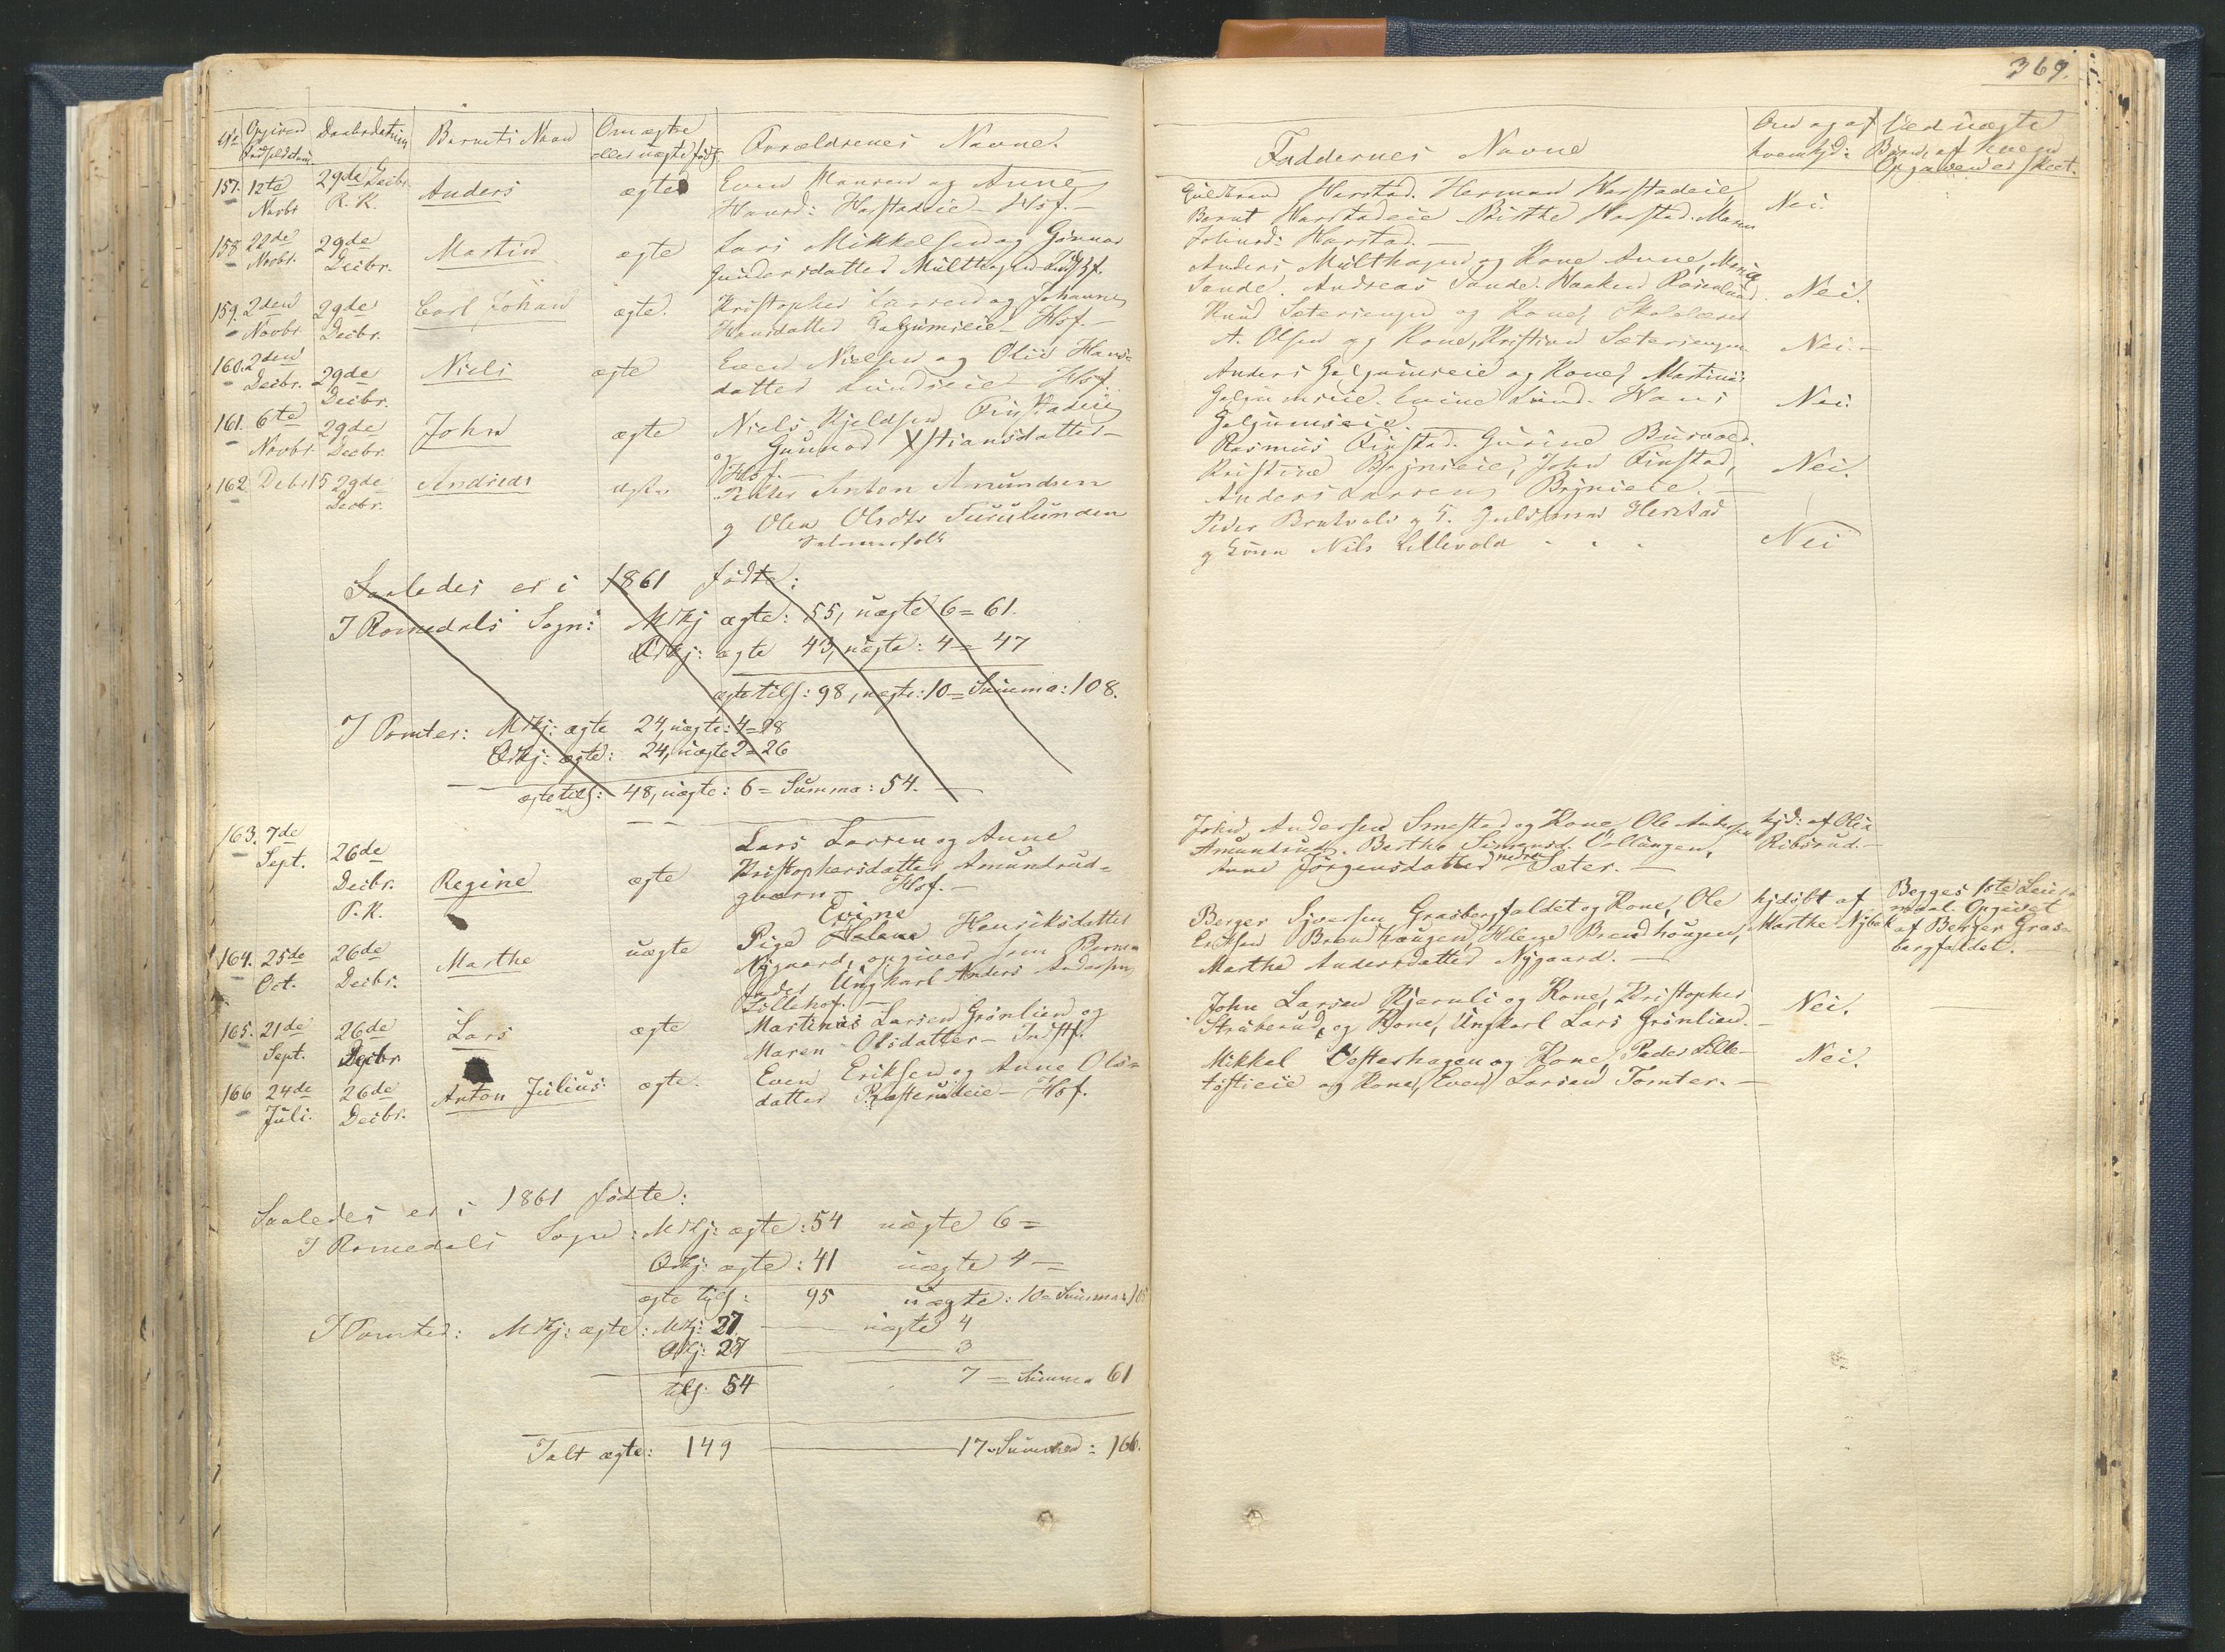 369.
No Opgiven Fødselsdatum. Daabsdatum Barnets Navn Om ægte eller uægte født. Forældrenes Navne.
Faddernes Navne Ved uægte Børn, af hvem Opgaven er skeet.
157. 12te Novbr 29de Decbr. R. K. Anders ægte Even Hansen og Anne
Hansd: Harstadeie - Hsf. -
Guldbrand Harstad. Herman Harstadeie
Bernt Harstadeie Birthe Harstad. Maren
Johnsd: Harstad. - Nei.
158 22de Novbr. 29de Decbr. Martin ægte Lars Mikkelsen og Gunnor
Gundersdatter Multhagen Indstf.
Anders Multhagen og Kone Anne, Maria
Sande. Andreas Sande. Haaken Rosenlund. Nei.
159. 2den Novbr. 29de Decbr. Carl Johan ægte. Kristopher Larsen og Johanne
Hansdatter Galgumseie - Hsf. -
Knud Sæterengen og Kone, Skolelærer
A. Olsen og Kone, Kristian Sæterengen. Nei. -
160. 2den Decbr. 29de Decbr. Niels ægte Even Nielsen og Olia Hans-
datter Lundseie Hsf.
Anders Galgumseie og Kone, Martinus
Galgumseie. Evine Lund. Hans
Galgumseie. Nei.
161. 6te Novbr. 29de Decbr. John ægte Niels Kjeldsen Finstadeie
og Gunnor Xstiansdatter -
Hsf. -
Rasmus Finstad. Gurine Burvold.
Kristine Brynieie, John Finstad,
Anders Larsen Brynieie. - Nei.
162 Debr 15 29de Decbr. Andreas ægte Peder Anton Amundsen
g Olea Olsdtr Furulunden
Selveierfolk
Peder Bratvold g T. Guldbrand Herstad
g Kona Nils Lillevold - - - Nei
Saaledes er i 1861 fødte:
I Romedals Sogn: MKj ægte: 55, uægte 6 = 61.
QKj: ægte 43, uægte: 4 = 47
ægte tils: 98, uægte: 10 = Summa: 108.
I Tomter: MKj: ægte 24, uægte: 4 = 28
QKj: ægte: 24, uægte 2 = 26
ægte tils: 48, uægte: 6 = Summa: 54. -
163. 7de Sept. 26de Decbr. T. K. Regine ægte Lars Larsen og Anne
Kristophersdatter Amundrud-
qværn - Hsf. -
John Andersen Smestad og Kone Ole Andersen
Amundrud. Berthe Simensd. Vollungen,
Anne Jørgensdatter nedre Sæter. -
hjd: af Olia
Ribsrud. -
164. 25de Oct. 26de Decbr. Marthe uægte Pige Evine Henriksdatter
Nygaard, opgiver som Barne-
fader Ungkarl Anders Andersen
Lillehof. -
Berger Syversen Grasbergfaldet og Kone, Ole
Eriksen Brendhaugen, Helene Brendhaugen,
Marthe Andersdatter Nygaard. -
hjdøbt af
Marthe Nybak
Begges 1ste Leier-
maal. Opgivet
af Berger Gras-
bergfaldet.
165. 21de Sept. 26de Decbr Lars ægte Martinus Larsen Grønlien og
Maren Olsdatter - Indstf.
John Larsen Kjernli og Kone, Kristopher
Struberud og Kone, Ungkarl Lars Grønlien. - Nei.
166 24de Juli. 26de Decbr. Anton Julius. ægte. Even Eriksen og Anne Ols-
datter Præsterudeie - Hsf.
Mikkel Vesterhagen og Kone, Peder Lille-
tøftieie og Kone, Even Larsen Tomter. - Nei.
Saaledes er i 1861 fødte:
I Romedals Sogn: MKj: ægte: 54 uægte 6 =
QKj: ægte: 41 uægte 4 =
ægte tils: 95 uægte: 10 = Summa: 105
I Tomter: MKj: ægte: MKj: 27 - uægte 4
QKj: 27 - 3
tils: 54 7 = Summa 61
Ialt ægte: 149 - 17 - Summa: 166.